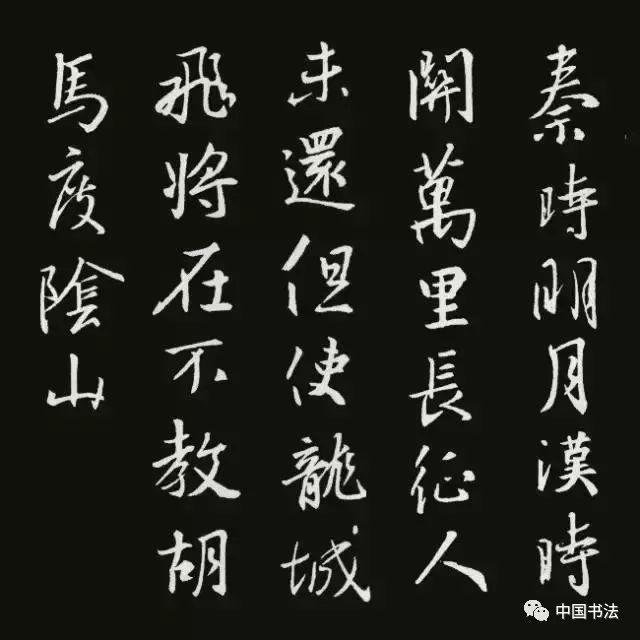 秦時明月漢時
關萬里長征人
未還但使龍城
飛將在不教胡
馬度陰山
中国书法